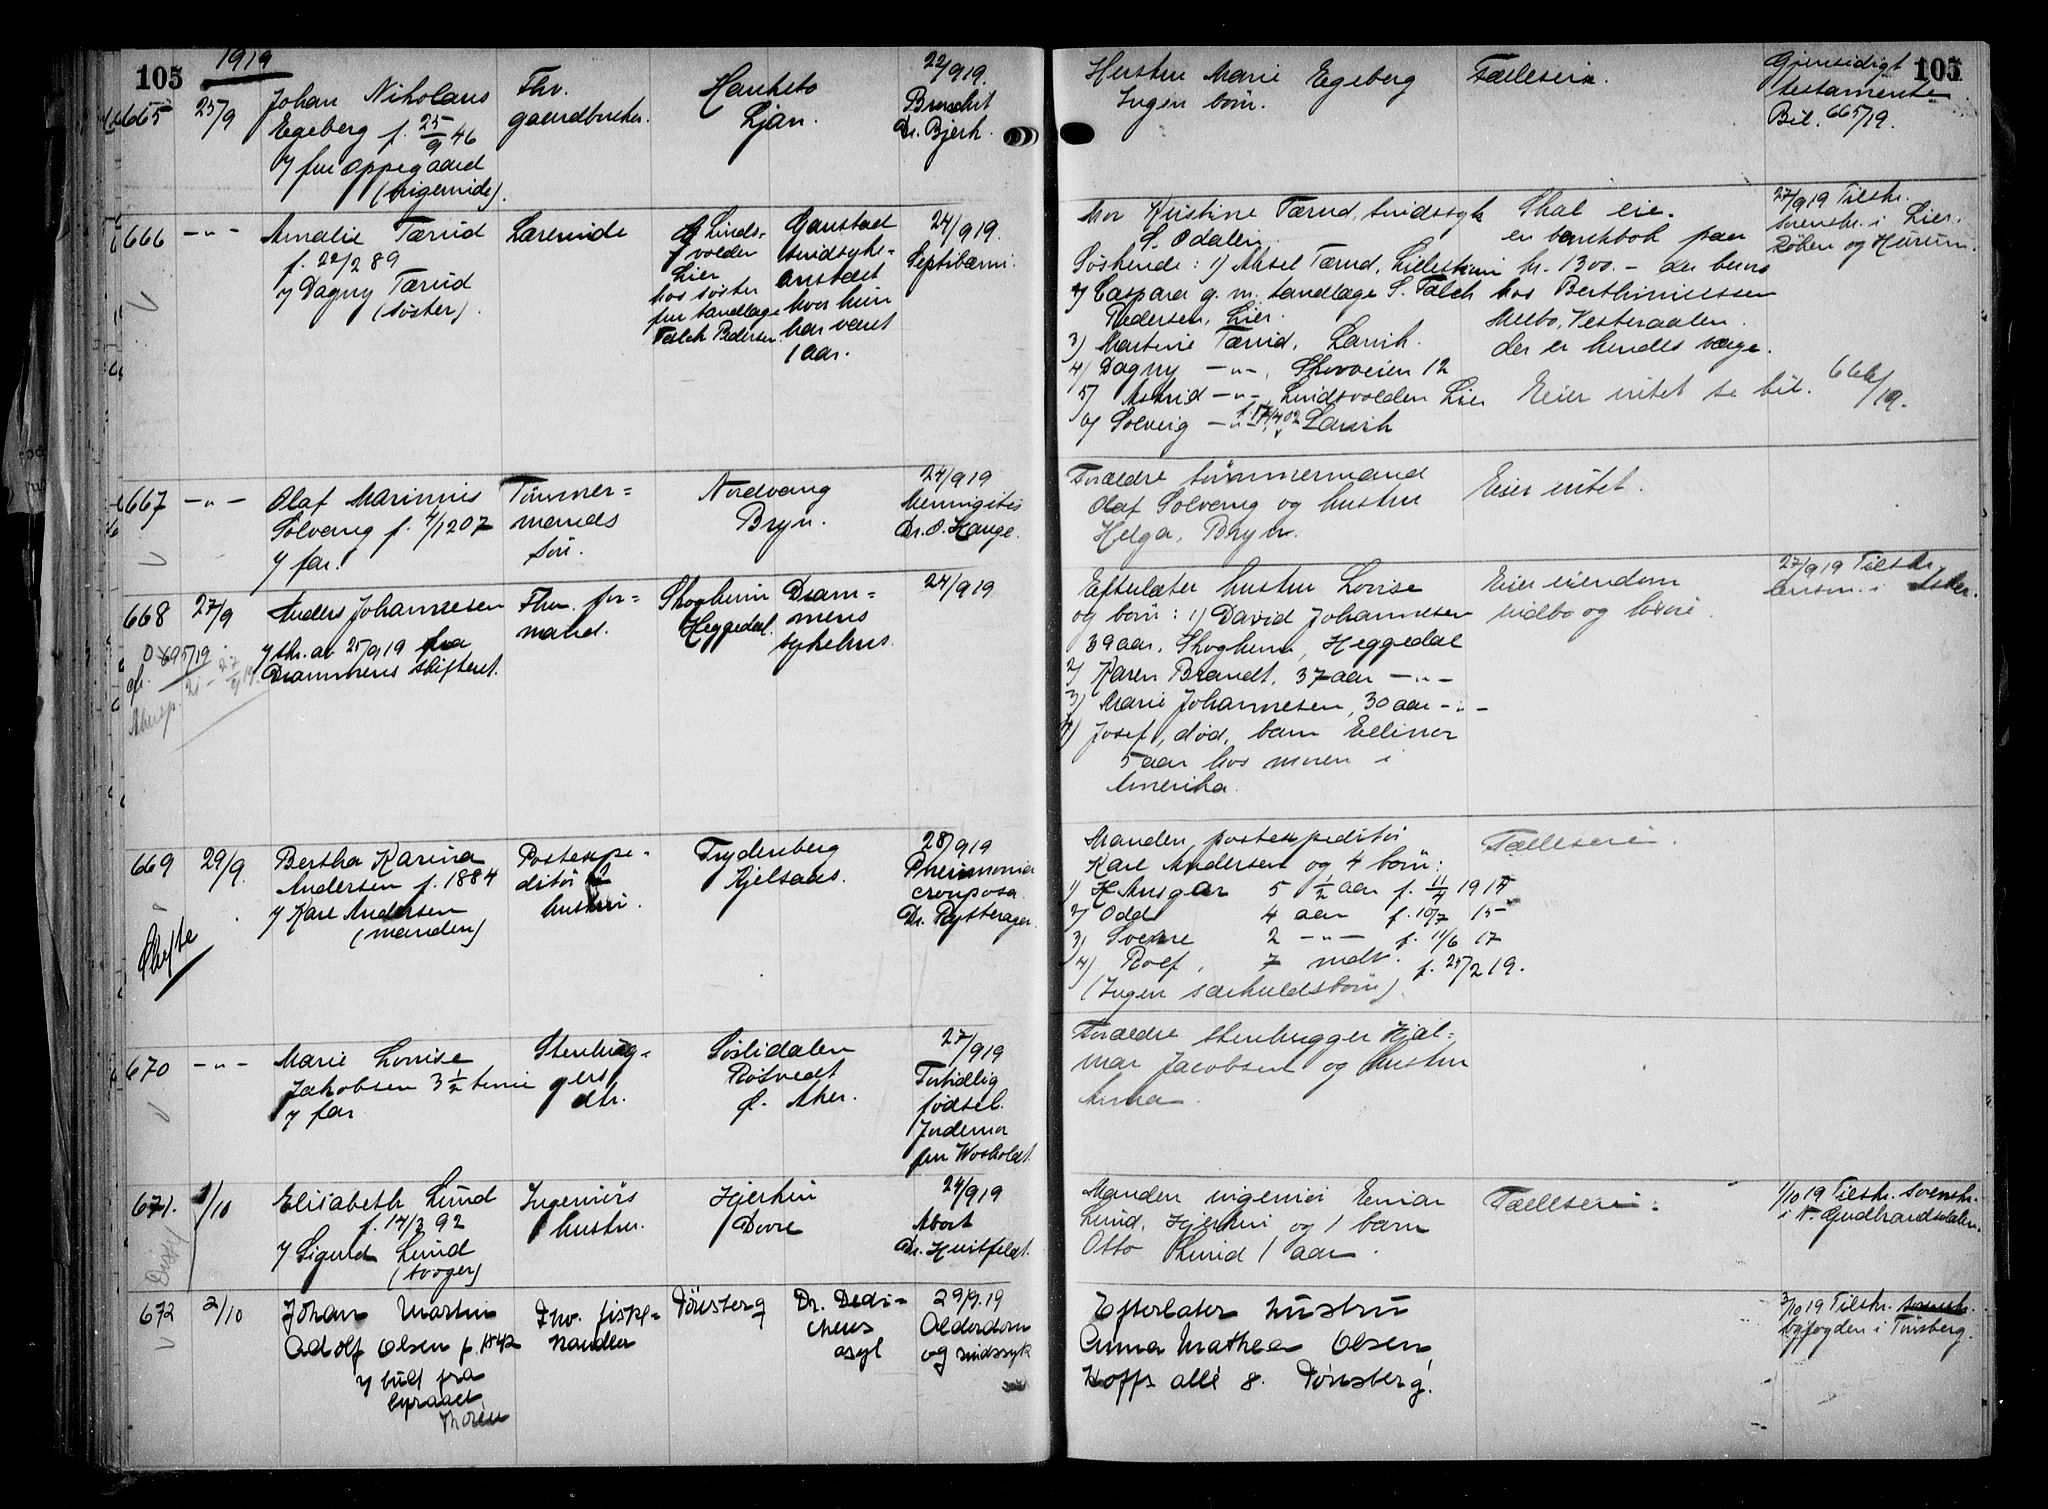 105
1919
665
25/9
Johan Nikolaus
Egeberg f. 25/9 46
v/ fru Oppegaard
(svigerinde).
Fhv.
gaardbruker.
Hauketo
Ljan.
22/9 19.
Dr. Bjerk.
Hustru Marie Egeberg
Ingen børn.
Fælleseie.
Gjensidigt
testamente
Bil. 665/19.
105
666
-"-
Amalie Tærud
f. 22/2 89
v/ Dagny Tærud
(søster).
Lærerinde
Linds-
volden
Lier
hos søster
fru tandlæge
Falch Pedersen.
Gaustad
sindsyke-
anstalt
hvor hun
har været
1 aar.
24/9 19.
Septikæmi.
Mor Kristine Tærud, sindssyk
S. Odalen.
Søskende: 1) Aksel Tærud, Lillestrøm
2) Caspara g. m. tandlæge S. Falch
Pedersen, Lier.
3) Martine Tærud, Larvik.
4) Dagny -"-, Skovveien 12
5) Astrid -"-, Lindsvolden Lier
6) Solveig -"- f. 17/4 02 Larvik
Skal eie
en bankbok paa
kr. 1300.- der beros
hos Berthinussen
Melbo, Vesteraalen
der er hendes værge.
Eier intet se bil. 666/19.
27/9 19 Tilskr.
sorenskr. i Lier,
Røken og Hurum.
667
-"-
Olaf Marinius
Solvang f. 4/12 07
v/ far.
Tømmer-
mands
søn.
Nordvang
Bryn.
24/9 19
Meningitis
Dr. O. Hauge.
Forældre tømmermand
Olaf Solvang og hustru
Helga, Bryn.
Eier intet.
668
27/9
Anders Johannesen
v/ skr. av 25/9 19 fra
Drammens skifteret.
695/19
Fhv. for-
mand.
Skogheim
Heggedal.
Dram-
mens
sykehus.
24/9 19
Efterlater hustru Lovise
og børn: 1) David Johannesen
39 aar, Skogheim, Heggedal
2) Karen Brandt, 37 aar -"-
3) Marie Johannesen, 30 aar -"-
4) Josef, død, barn Ellinor
5 aar hos moren i
Amerika.
Eier eiendom
indbo og løsøre.
27/9 19 Tilskr.
lensm. i Asker.
669
29/9.
Skifte
Bertha Karina
Andersen f. 1884
v/ Karl Andersen
(manden)
Postexpe-
ditør
hustru.
Frydenberg
Kjelsaas.
28/9 19
Pneumonia
crouposa.
Dr. Rytterager.
Manden postexpeditør
Karl Andersen og 4 børn:
1) Ansgar 5 1/2 aar f. 11/4 1914
2) Odd 4 aar f. 10/7 15
3) Sverre 2 -"- f. 11/6 17
4) Rolf, 7 mdr. f. 25/2 19.
(Ingen særkuldsbørn)
Fælleseie.
670
-"-
Marie Lovise
Jakobsen 3 1/2 time
v/ far
Stenhug-
gers
dtr.
Søslidalen
Røtvedt
Ø. Aker.
27/9 19
Fortidlig
fødsel.
Jordemor
fru
Forældre stenhugger Hjal-
mar Jacobsen og hustru
Anna.
671.
1/10
Elisabeth Lund
f. 14/3 92
v/ Sigurd Lund
(svoger)
Ingeniørs
hustru.
Hjerkin
Dovre
24/9 19
Abort
Dr. Huitfeldt.
Manden ingeniør Einar
Lund, Hjerkin og 1 barn
Otto Lund 1 aar.
Fælleseie.
1/10 19 Tilskr. sorenskr.
i N. Gudbrandsdalen.
672
2/10
Johan Martin
Adolf Olsen f. 1842
v/ bud fra
byraaet
Thorén
Fhv. fiske-
handler
Tønsberg
Dr. Dedi-
chens
asyl
29/9.19
Alderdom
og sindssyk
Efterlater hustru
Anna Mathea Olsen,
Hoffs allé 8. Tønsberg.
3/10 19 Tilskr. sorenskr.
byfogden i Tønsberg.